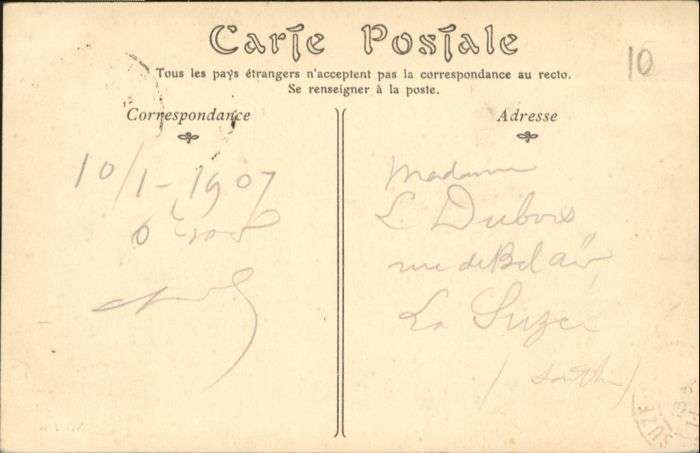 Carte Postale
10
Tous les pays étrangers n'acceptent pas la correspondance au recto.
Se renseigner à la poste.
Correspondance
10/1-1907
Adresse
Madame
L Dubois
rue de Bel air
La Suze
(Sarthe)
SUZE